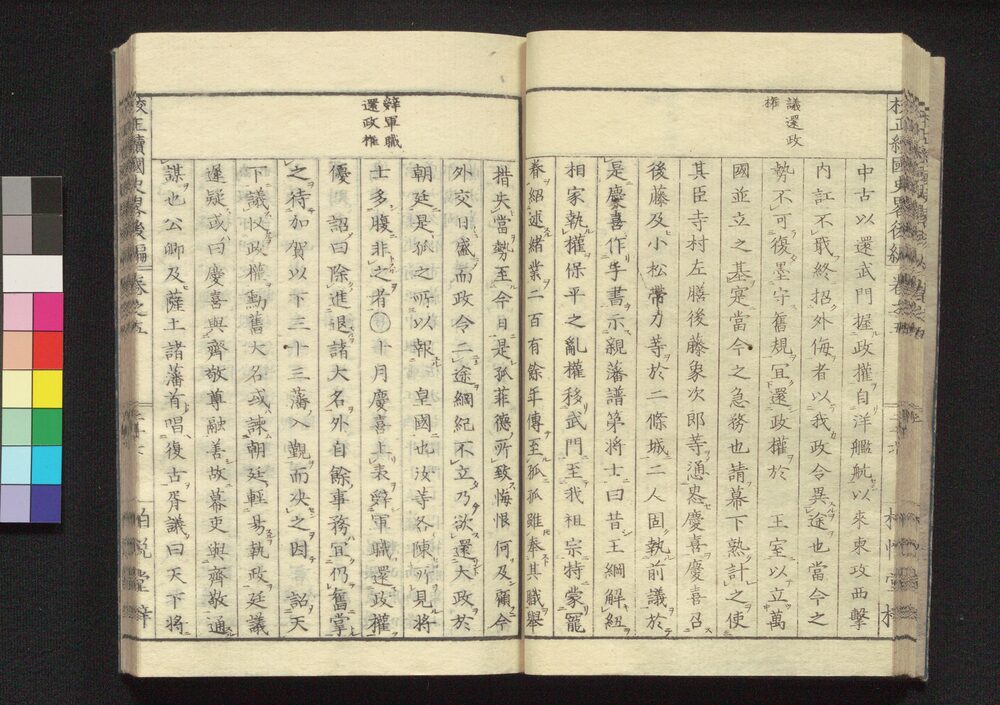 議還政
権
中古以還武門握政權自洋艦航以來東攻西擊
内訌不戢終招外侮者以我政令異途也當今之
勢不可復墨守舊規宜還政權於　王室以立萬
國並立之基寔當今之急務也請幕下熟計之使
其臣寺村左膳後藤象次郎等慂慂慶喜慶喜召
後藤及小松帶刀等於二條城二人固執前議於
是慶喜作手書示親藩譜第將士曰昔王綱解紐
相家執權保平之亂權移武門至我祖宗特蒙寵
眷紹述緒業二百有餘年傳至孤孤雖奉其職舉
辭軍職
還政権
措失當勢至今日是孤菲德所致悔恨何及顧今
外交日盛而政令二途綱紀不立乃欲還大政於
朝廷是孤之所以報　皇國也汝等各陳所見將
士多腹非之者〇十月慶喜上表辭軍職還政權
優　詔曰除進退諸大名外自餘事務宜仍舊掌
之待加賀以下三十三藩入覲而决之因　詔天
下議収政權勳舊大名或諫朝廷輕昜執政廷議
遲疑或曰慶喜與齊敬尊融善故幕吏與齊敬通
謀也公卿及薩土諸藩首唱復古胥議曰天下將
校正續國史畧後編　卷之五